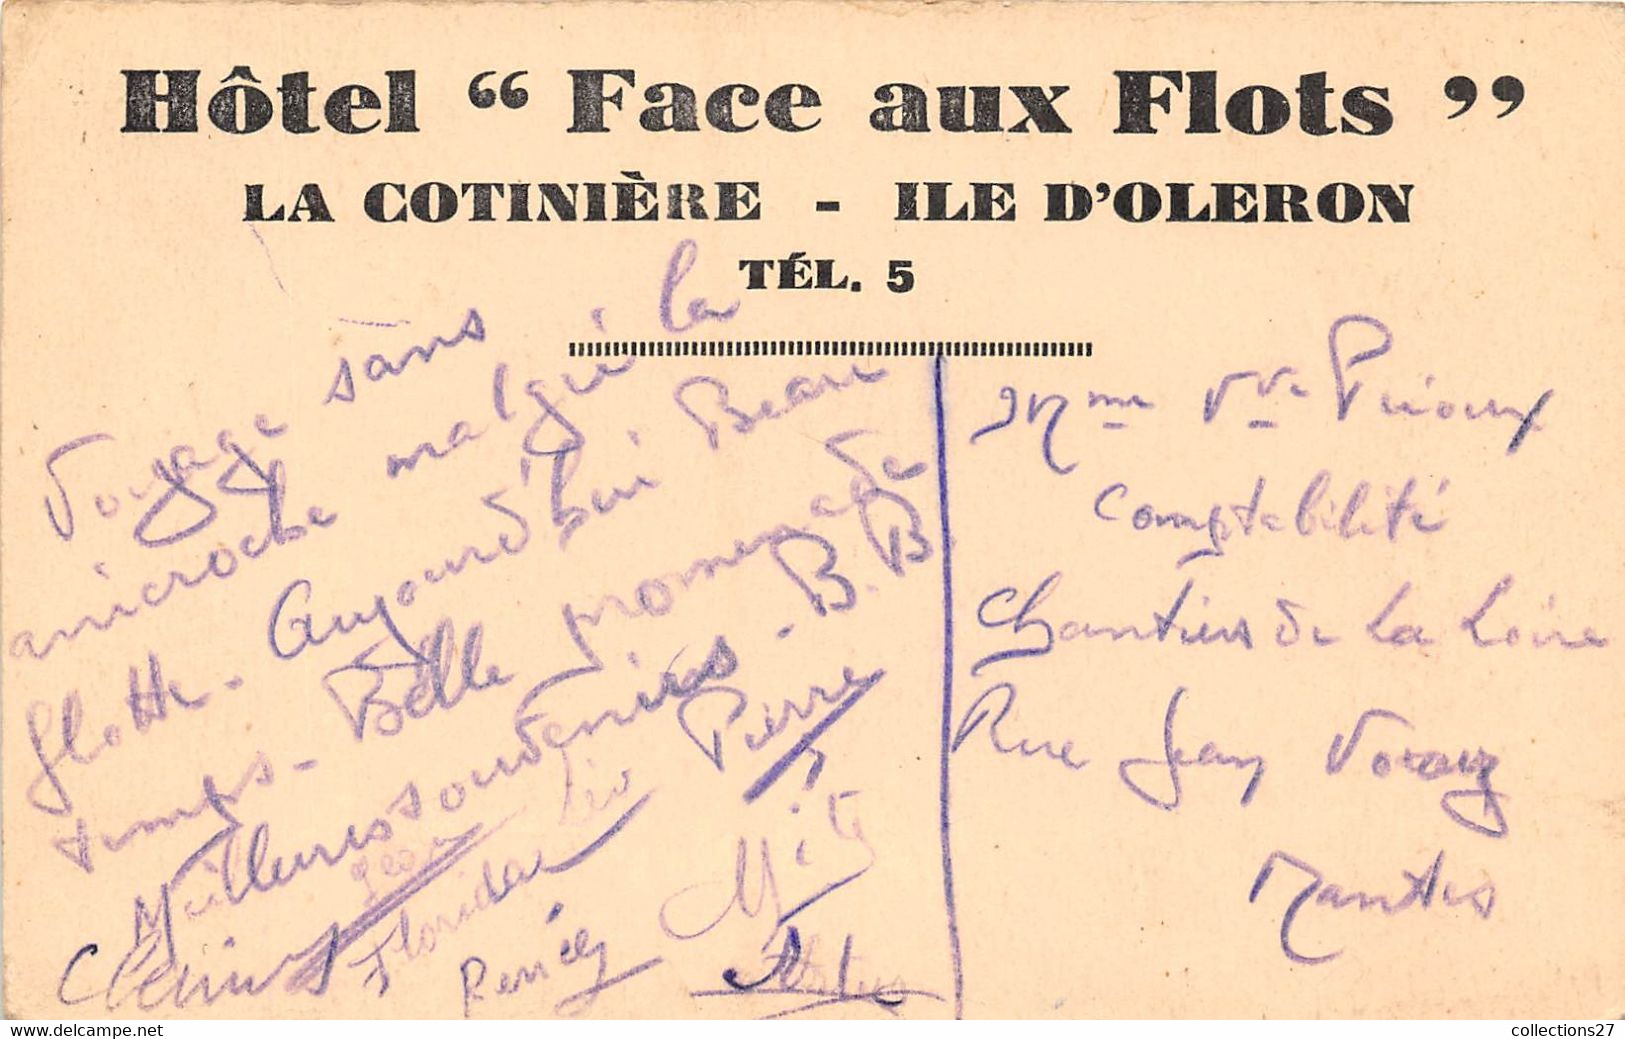 Hôtel “ Face aux Flots ”
LA COTINIÈRE - ILE D'OLERON
TÉL. 5
Voyage sans
anicroche malgré la
flotte. Aujourd'hui Beau
temps. Belle promenade
Meilleurs souvenirs. B.B.
Pierre
Léo
Jean
Floridor
Mité
Mme Vve
Comptabilité
Chantiers de La Loire
Rue Jean
Nantes
collections27